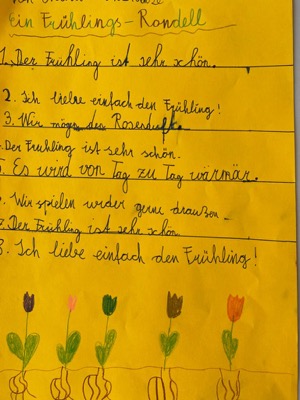 Ein Frühlings-Rondell
1. Der Frühling ist sehr schön.
2. Ich liebe einfach den Frühling!
3. Wir mögen den
Der Frühling ist sehr schön.
5. Es wird von Tag zu Tag wärmär.
Wir spielen wieder gerne draußen
7. Der Frühling ist sehr schön.
8. Ich liebe einfach den Frühling!